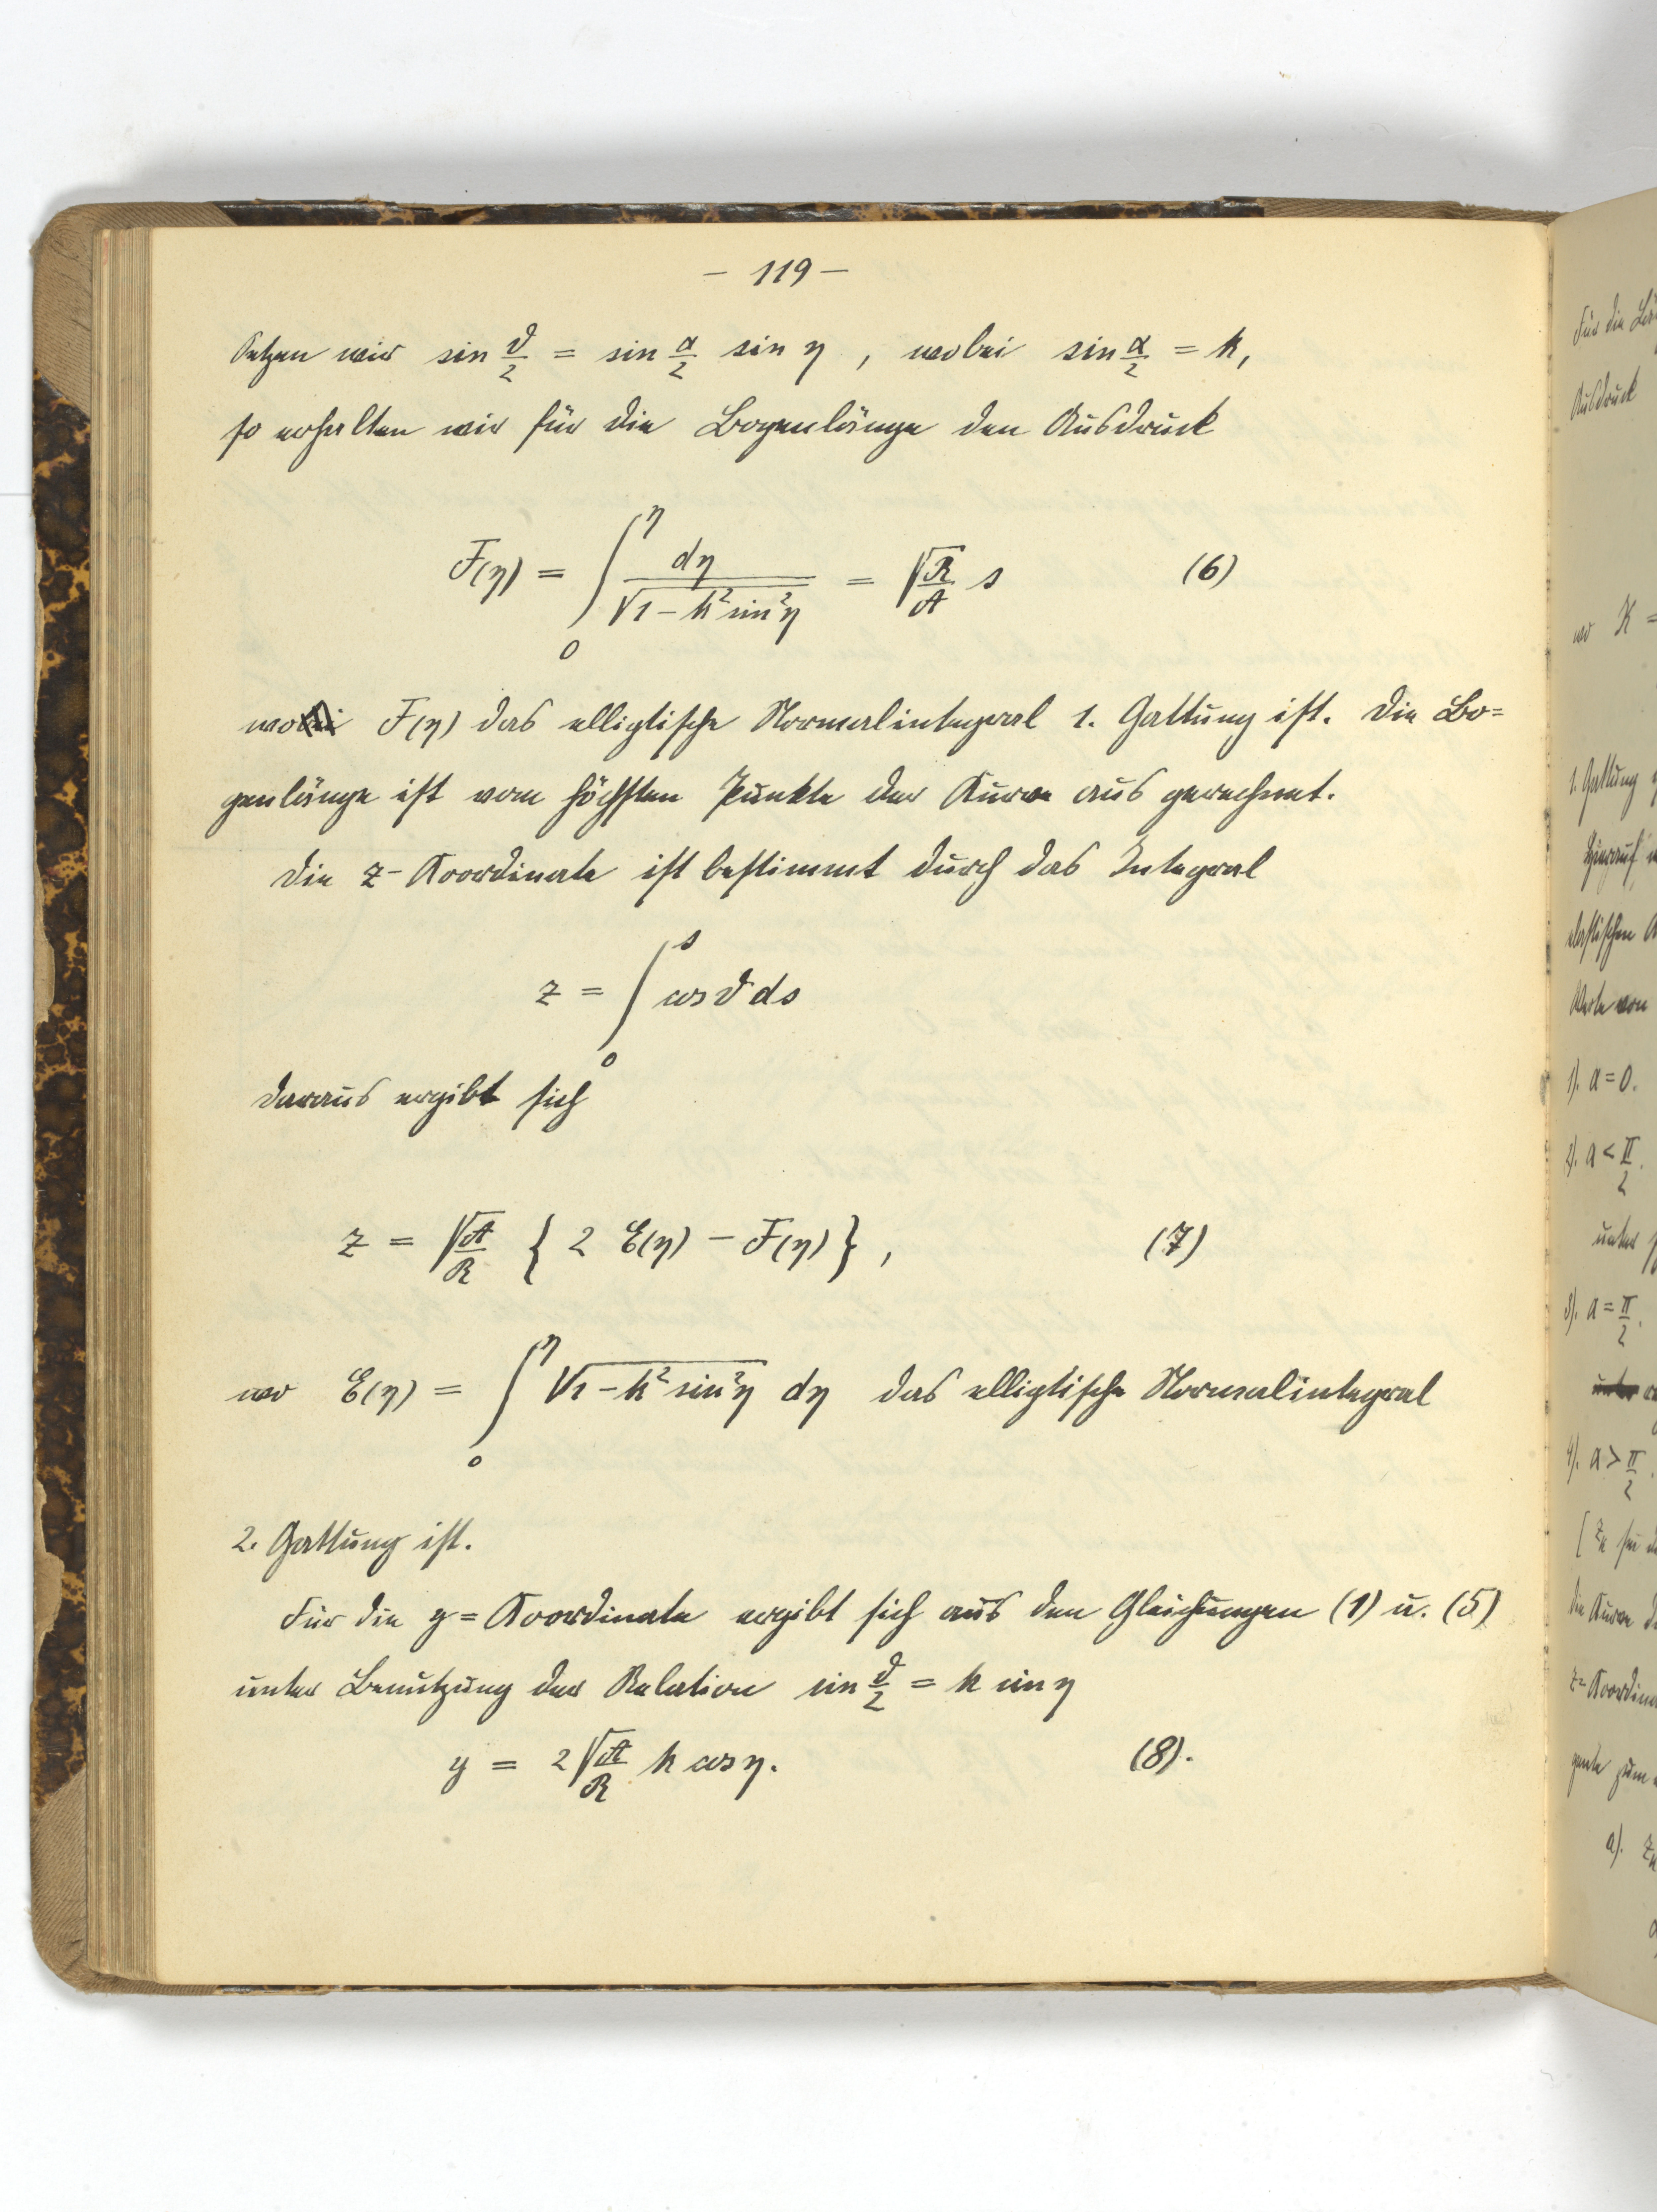 – 119 –
Setzen wir sin ϑ/2 = sin α/2 sin η , wobei sin α/2 = k,
so erhalten wir für die Bogenlänge den Ausdruck
F(η) = ∫₀^η dη / √(1 – k² sin² η) = √(R/A) s (6)
wo F(η) das elliptische Normalintegral 1. Gattung ist. Die Bo=
genlänge ist vom höchsten Punkte der Kurve aus gerechnet.
Die z- Koordinate ist bestimmt durch das Integral
z = ∫₀^s cos ϑ ds
daraus ergibt sich
z = √(A/R) { 2 E(η) – F(η) } , (7)
wo E(η) = ∫₀^η √(1 – k² sin² η) dη das elliptische Normalintegral
2. Gattung ist.
Für die y = Koordinate ergibt sich aus den Gleichungen (1) u. (5)
unter Benutzung der Relation sin ϑ/2 = k sin η
y = 2 √(A/R) k cos η. (8).
Für die
Ausdruck
wo K =
1. Gattung
Hierauf
elastischen
Werte von
1). α = 0.
2). α < π/2.
unter
3). α = π/2.
4). α > π/2.
[ zₖ sei
die Kurve
z = Koordina
zum
a). z